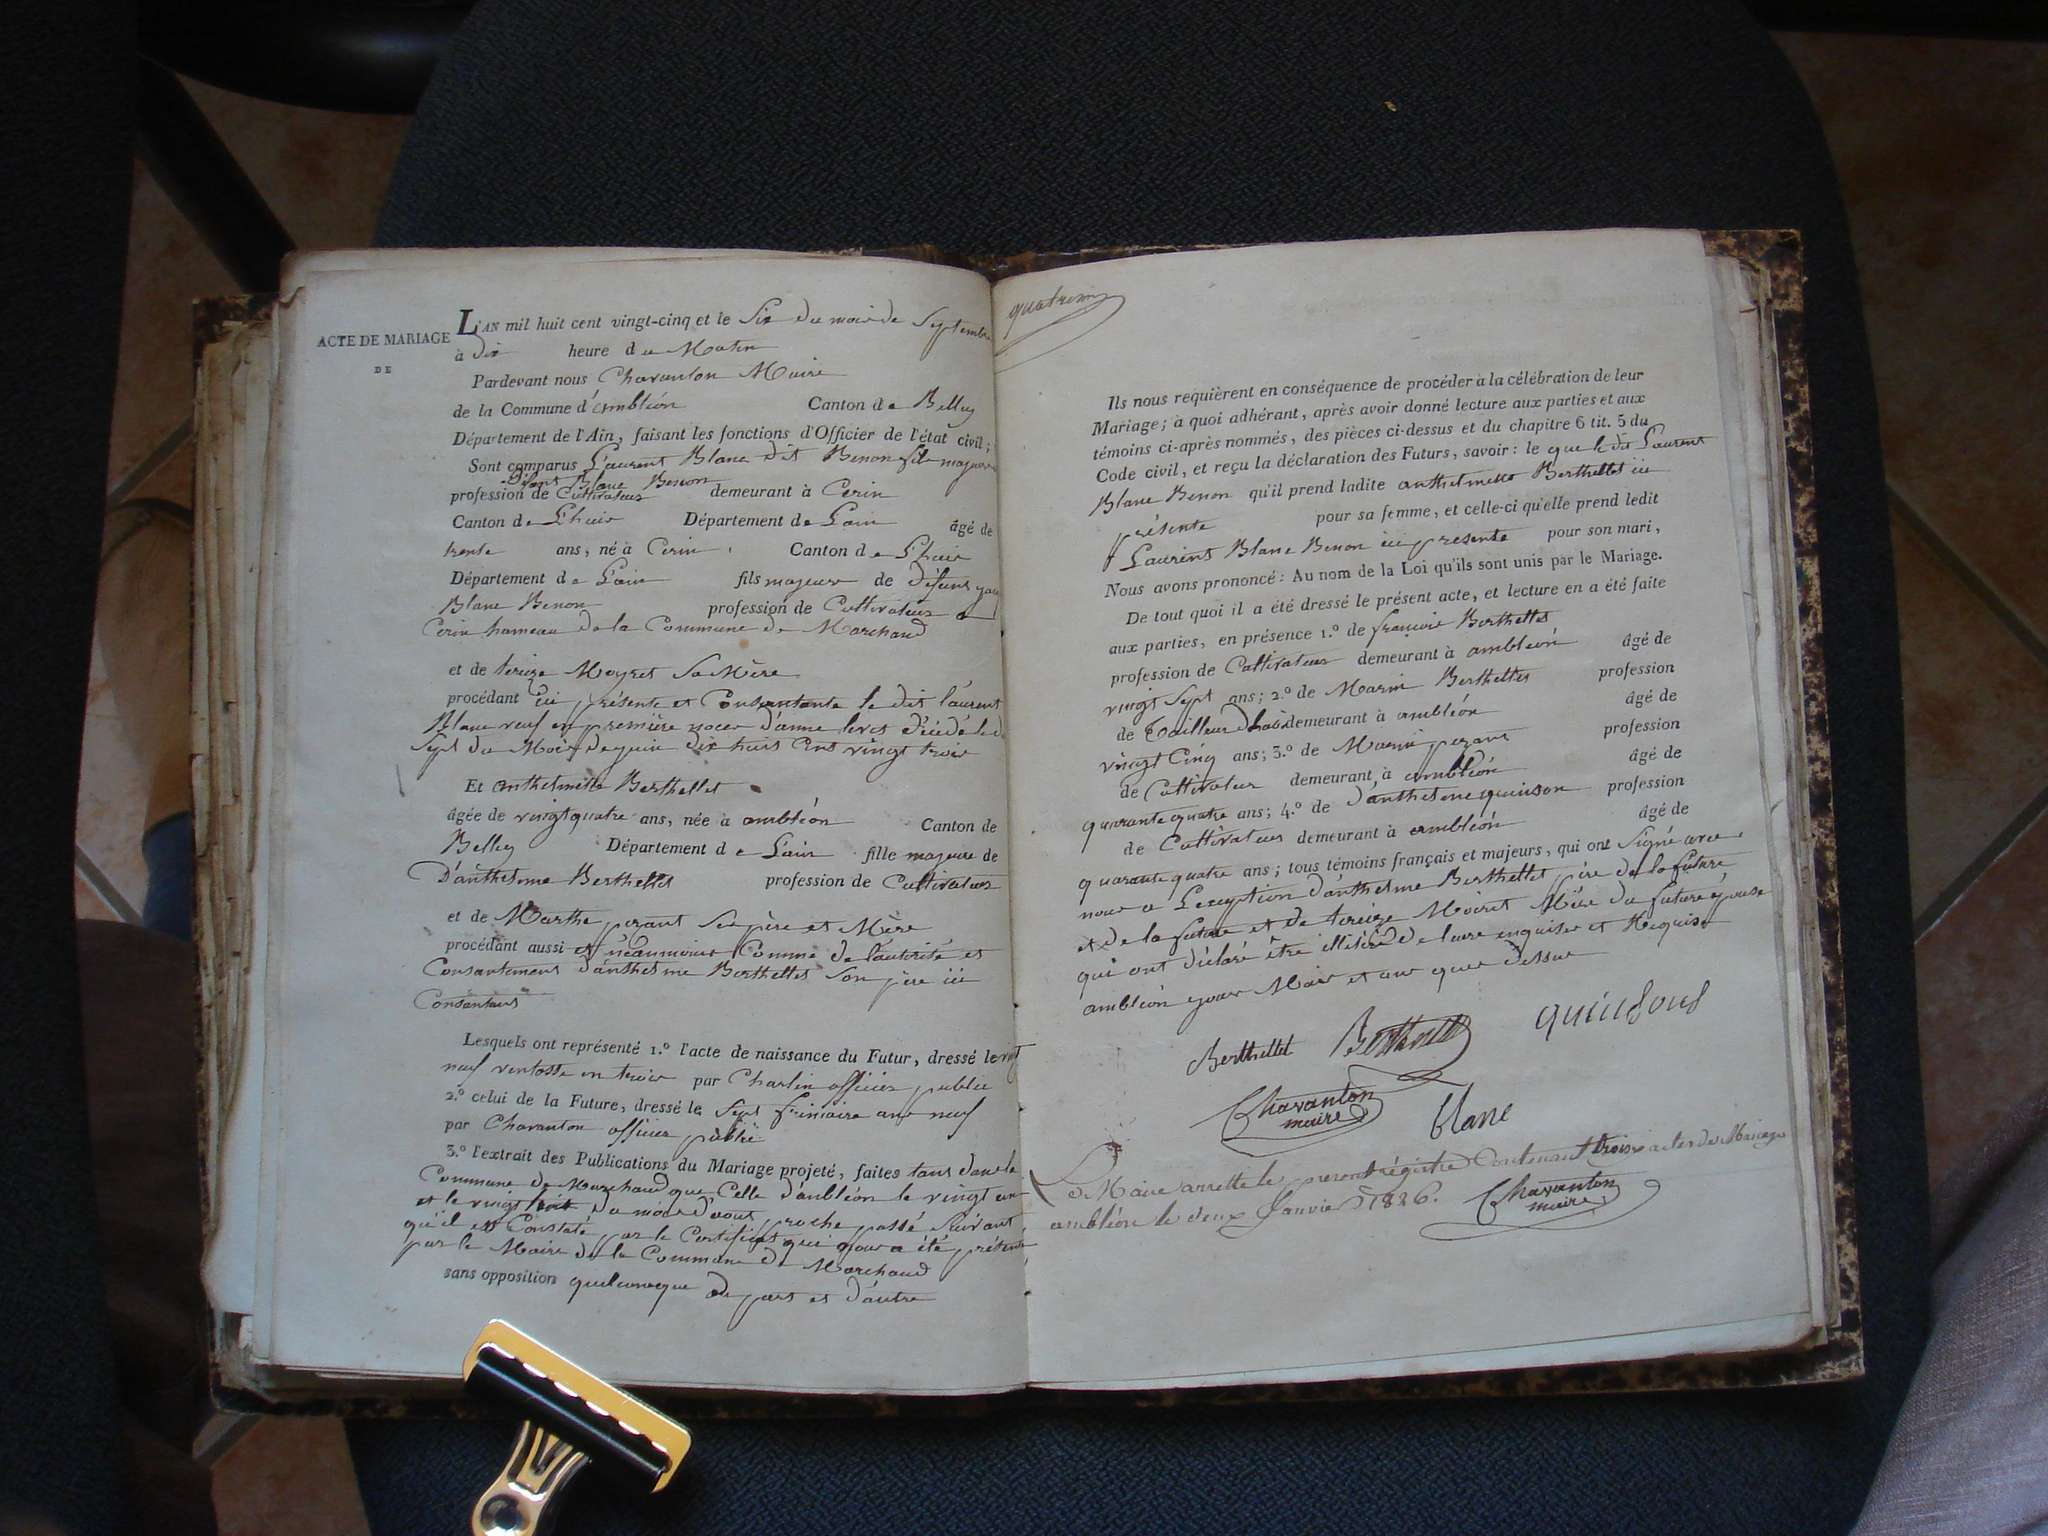 ACTE DE MARIAGE
DE
L'AN mil huit cent vingt-cinq et le Six du mois de Septembre
à dix heure du Matin
Pardevant nous Chavanton Maire
de la Commune d'ambléon Canton de Belley
Département de l'Ain, faisant les fonctions d'Officier de l'état civil;
Sont comparus Laurent Blanc dit Benon fils majeur
Blanc Benon
profession de Cultivateur demeurant à Cerin
Canton de L'huis Département de L'ain âgé de
trente ans, né à Cerin, Canton de L'huis
Département de L'ain fils majeur de défunt
Blanc Benon profession de Cultivateur a
Cerin hameau de la Commune de Marchand
et de tereize Moyret Sa Mère
procédant ici présente et Consantante le dit laurent
Blanc veuf en première noces d'anne décédé le
Sept du Mois de juin dix huit Cent vingt trois
Et anthelmette Berthellet
âgée de vingt quatre ans, née à ambléon Canton de
Belley Département de L'ain fille majeure de
D'anthelme Berthellet profession de Cultivateur
et de Marthe pezant Ses père et Mère
procédant aussi et néanmoins Comme de l'autorité et
Consantement d'anthelme Berthellet Son père ici
Consantant
Lesquels ont représenté 1.º l'acte de naissance du Futur, dressé le vingt
neuf ventosse en trois par Charlin officier public
2.º celui de la Future, dressé le Sept frimaire an neuf
par Chavanton officier public
3.º l'extrait des Publications du Mariage projeté, faites tans dans la
Commune de Marchand que Celle d'ambléon le vingt un
et le vingt huit du mois d'aout proche passé, Suivant
qu'il est Constaté par le Certificat qui nous a été présenté
par le Maire de la Commune de Marchand
sans opposition quelconque de part et d'autre
quatrem
Ils nous requièrent en conséquence de procéder à la célébration de leur
Mariage; à quoi adhérant, après avoir donné lecture aux parties et aux
témoins ci-après nommés, des pièces ci-dessus et du chapitre 6 tit. 5 du
Code civil, et reçu la déclaration des Futurs, savoir: le que le dit Laurent
Blanc Benon qu'il prend ladite anthelmette Berthellet ici
présente pour sa femme, et celle-ci qu'elle prend ledit
Laurent Blanc Benon ici présente pour son mari,
Nous avons prononcé: Au nom de la Loi qu'ils sont unis par le Mariage.
De tout quoi il a été dressé le présent acte, et lecture en a été faite
aux parties, en présence 1.º de françois Berthellet
profession de Cultivateur demeurant à ambléon âgé de
vingt Sept ans; 2.º de Marin Berthellet profession
de tailleur d'habis demeurant à ambléon âgé de
vingt Cinq ans; 3.º de Marin pezant profession
de Cultivateur demeurant à ambléon âgé de
quarante quatre ans; 4.º de d'anthelme quinson profession
de Cultivateur demeurant à ambléon âgé de
quarante quatre ans; tous témoins français et majeurs, qui ont Signé avec
nous a L'exeption d'anthelme Berthellet père de la future
et de la future et de tereize Moiret Mère du future époux
qui ont déclaré être illitéré de leure enquiser et Requise
ambléon jour Mois et an que dessus
Berthellet Berthellet quinson
Chavanton
maire
blanc
Le Maire arrette le present régistre Contenant trois actes de Mariage
ambléon le deux Janvier 1826.
Chavanton
maire